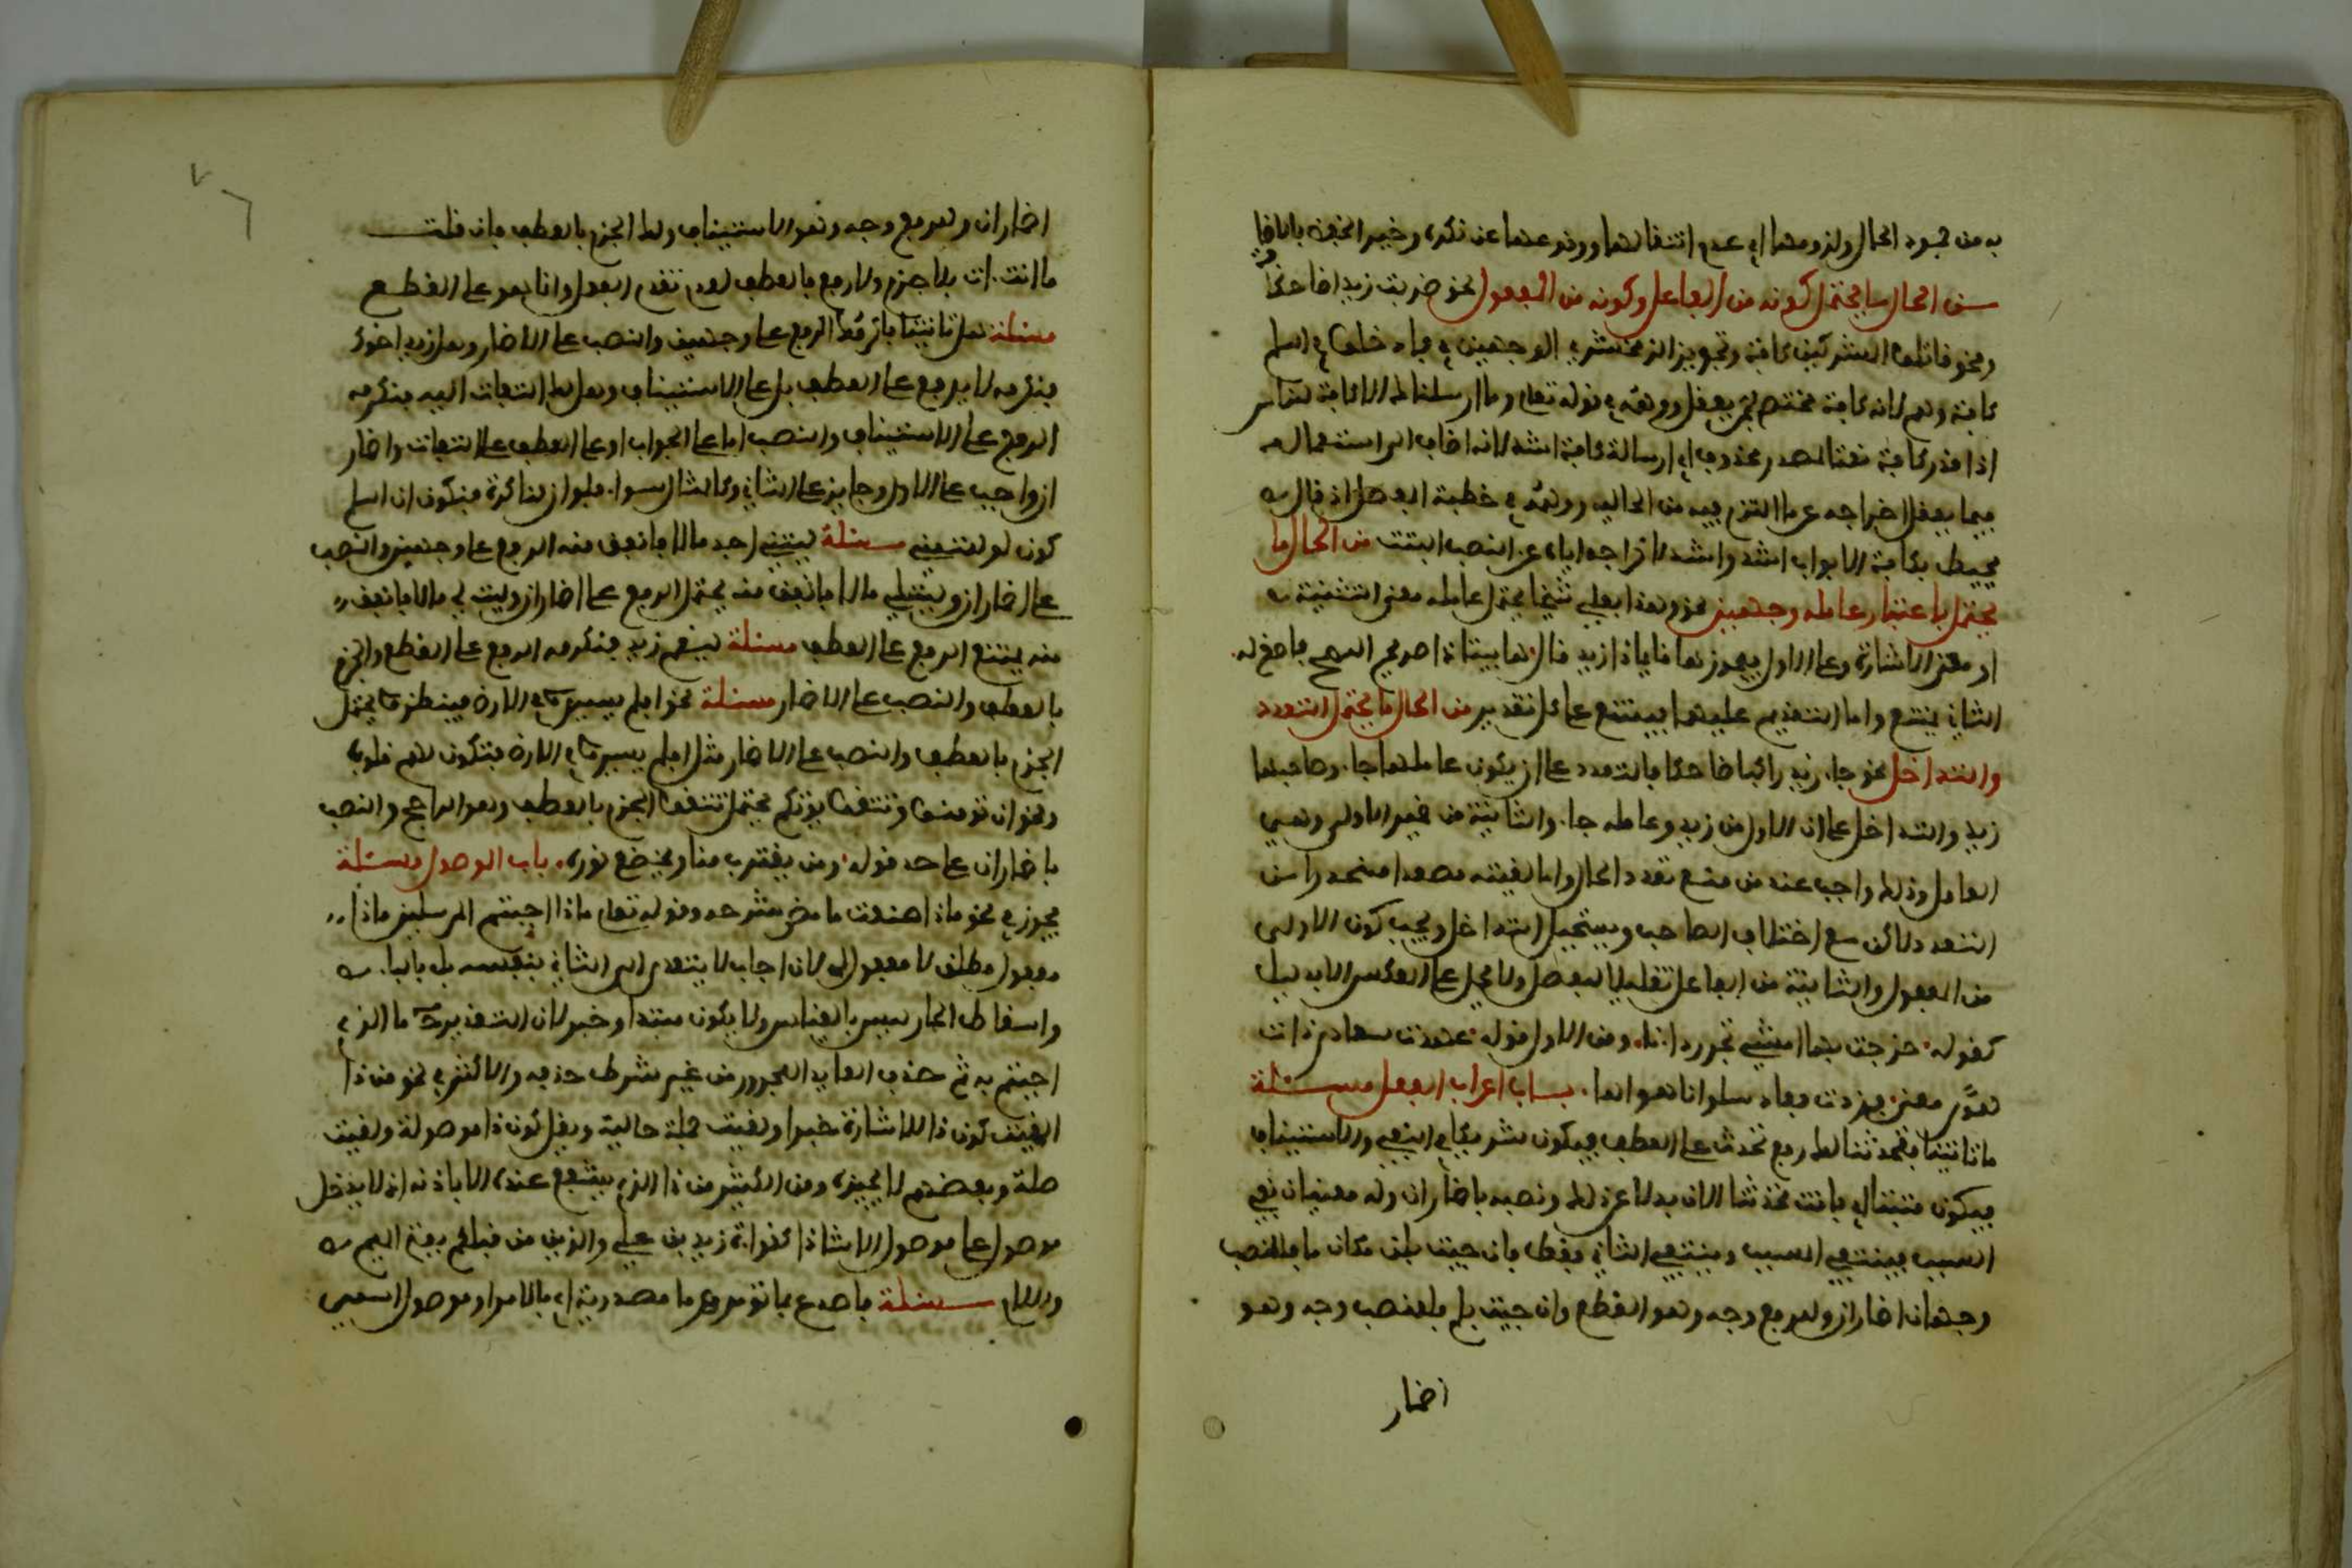 به من جمود الحال ولزومها اي عدم انتقالها ووقوعها عن نكرة وخبر الخوف بانا قايما
من الحال ما يحتمل كونه من الفاعل وكونه من المفعول نحو ضربت زيدا ضاحكا
ونحو قاتلوا المشركين كافة وتجويز الزمخشري الوجهين في ادخلوا في السلم
كافة وهم لان كافة مختص بمن يعقل ووهمه في قوله تعلى وما ارسلناك الا كافة للناس
اذا قدر كافة نعتا لمصدر محذوف اي ارسالة كافة اشد لانه اضاف الى استعماله
فيما لا يعقل اخراجه عما التزم فيه من الحالية ووهمه في خطبة المفصل اذ قال
محيط بكافة الابواب اشد واشد لاخراجه اياه عن النصب البتة من الحال ما
يحتمل باعتبار عامله وجهين نحو وهذا بعلي شيخا يحتمل عامله معنى التنبيه
او معنى الاشارة وعلى الاول فيجوز ها قايما ذا زيد قال ها بينا ذا صريح النصح فاصغ له
الثاني يمتنع واما التقديم عليهما فيمتنع على كل تقدير من الحال ما يحتمل التعدد
والتداخل نحو جاء زيد راكبا ضاحكا فالتعدد على ان يكون عاملهما جاء وصاحبهما
زيد والتداخل على ان الاولى من زيد وعامله جاء والثانية من ضمير الاولى وهي
العامل وذلك واجب عند من منع تعدد الحال واما لقيته مصعدا منحدرا من
التعدد لاكن مع اختلاف الصاحب ويستحيل التداخل ويجب كون الاولى
من المفعول والثانية من الفاعل تقليلا للفصل ولا يحمل على العكس الا بدليل
كقوله خرجت بها امشي تجر وراءنا ومن الاول قوله عهدت سعاد ذات
هوى معنى فزدت وعاد سلوانا هواها باب اعراب الفعل مسئلة
ما تاتينا فتحدثنا لك رفع تحدث على العطف فيكون شريكا في النفي والاستيناف
فيكون مثبتا اي فانت تحدثنا الان بدلا عن ذلك ونصبه باضمار ان وله معنيان نفي
السبب فينتفي المسبب وينتفي الثاني فقط فان جيت بلن مكان ما فللنصب
وجهان اضمار ان وللرفع وجه وهو القطع وان جيت بلم فللنصب وجه وهو
اضمار
اضمار ان وللرفع وجه وهو الاستيناف ولك الجزم بالعطف فان قلت
ما انت ات فلا جزم ولا رفع بالعطف لعدم تقدم الفعل وانما هو على القطع
مسئلة هل تاتينا فاكرمك الرفع على وجهين والنصب على الاضمار وهل زيد اخوك
فنكرمه لا يرفع على العطف بل على الاستيناف وهل لك التفات اليه فنكرمه
الرفع على الاستيناف والنصب اما على الجواب او على العطف على التفات واضمار
ان واجب على الاول وجايز على الثاني وكالمثال سواء فلو ان لنا كرة فنكون ان اسلم
كون لو للتمني مسئلة ليتني اجد مالا فانفق منه الرفع على وجهين والنصب
على اضمار ان وليت لي مالا فانفق منه يحتمل الرفع على اضمار ان وليت لي مالا فانفق
منه يمتنع الرفع على العطف مسئلة ليقم زيد فنكرمه الرفع على القطع والجزم
بالعطف والنصب على الاضمار مسئلة نحو افلم يسيروا في الارض فينظروا يحتمل
الجزم بالعطف والنصب على الاضمار مثل افلم يسيروا في الارض فتكون لهم قلوب
ونحو ان تومنوا وتتقوا يؤتكم يحتمل تتقوا الجزم بالعطف وهو الراجح والنصب
باضمار ان على حد قوله ومن يقترب منا ويخضع نؤوه باب الموصول مسئلة
يجوز في نحو ماذا صنعت ما مضى شرحه وقوله تعلى ماذا اجبتم المرسلين ماذا
مفعول مطلق لا مفعول به لان اجاب لا يتعدى الى الثاني بنفسه بل بالباء
واسقاط الجار ليس بالقياس ولا يكون مبتدا وخبر لان التقدير ما الذي
اجبتم به ثم حذف العايد المجرور من غير شرط حذفه والاكثر في نحو من ذا
لقيت كون ذا للاشارة خبرا ولقيت جملة حالية ويقل كون ذا موصولة ولقيت
صلة وبعضهم لا يجيزه ومن الكثير من ذا الذي يشفع عنده الا باذنه اذ لا يدخل
موصول على موصول الا شاذا كقراءة زيد بن علي والذين من قبلكم بفتح الميم
واللام مسئلة فاصدع بما تؤمر وما مصدرية اي بالامر او موصول اسمي